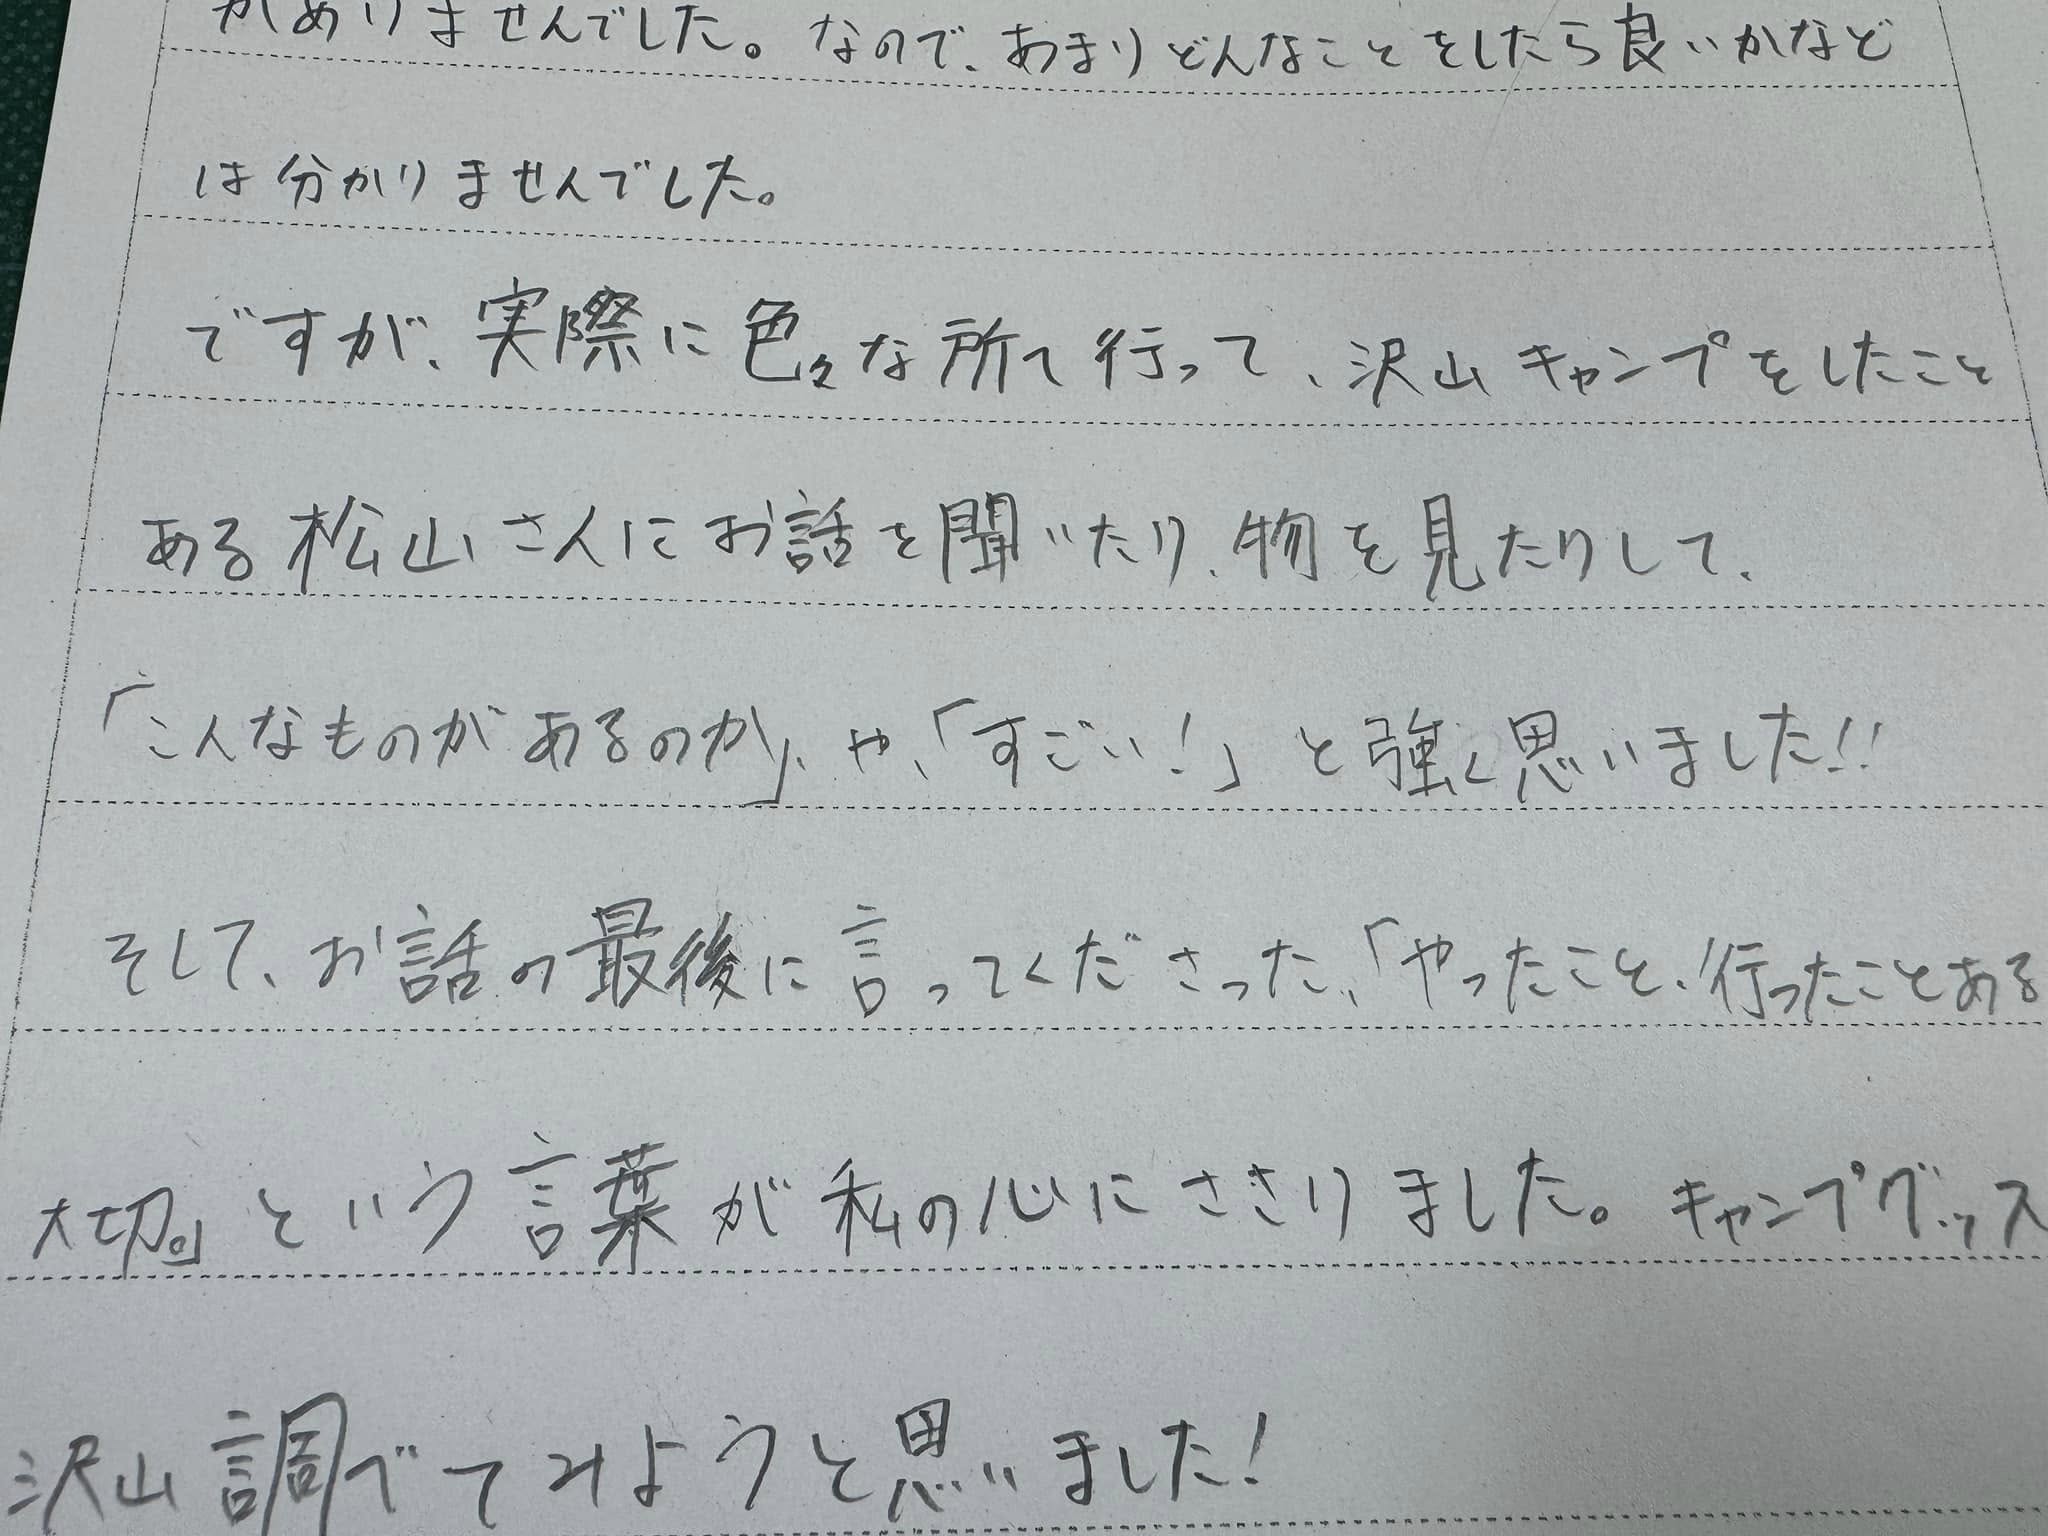 がありませんでした。なので、あまりどんなことをしたら良いかなど
は分かりませんでした。
ですが、実際に色々な所へ行って、沢山キャンプをしたこと
ある松山さんにお話を聞いたり、物を見たりして、
「こんなものがあるのか」、や、「すごい！」と強く思いました!!
そして、お話の最後に言ってくださった、「やったこと、行ったことある
大切。」という言葉が私の心にささりました。キャンプグッズ
沢山調べてみようと思いました!